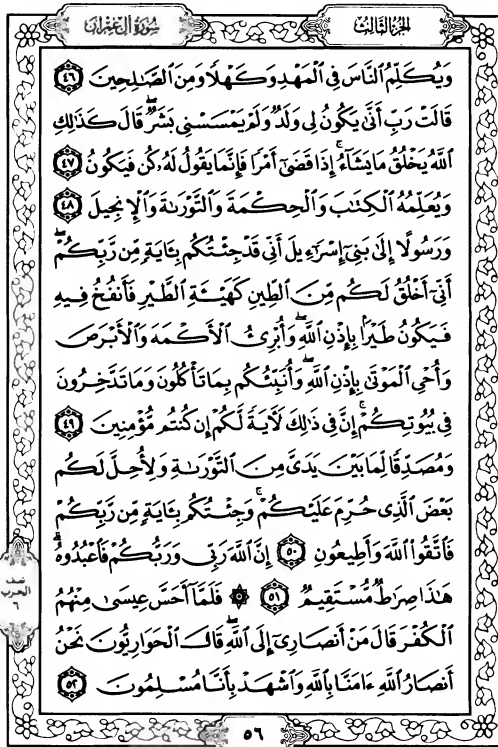 سُورَةُ آلِ عِمْرَانَ
الجُزْءُ الثَّالِثُ
وَيُكَلِّمُ ٱلنَّاسَ فِى ٱلْمَهْدِ وَكَهْلًا وَمِنَ ٱلصَّٰلِحِينَ ٤٦
قَالَتْ رَبِّ أَنَّىٰ يَكُونُ لِى وَلَدٌ وَلَمْ يَمْسَسْنِى بَشَرٌۖ قَالَ كَذَٰلِكِ
ٱللَّهُ يَخْلُقُ مَا يَشَآءُۚ إِذَا قَضَىٰٓ أَمْرًا فَإِنَّمَا يَقُولُ لَهُۥ كُن فَيَكُونُ ٤٧
وَيُعَلِّمُهُ ٱلْكِتَٰبَ وَٱلْحِكْمَةَ وَٱلتَّوْرَىٰةَ وَٱلْإِنجِيلَ ٤٨
وَرَسُولًا إِلَىٰ بَنِىٓ إِسْرَٰٓءِيلَ أَنِّى قَدْ جِئْتُكُم بِـَٔايَةٍ مِّن رَّبِّكُمْۖ
أَنِّىٓ أَخْلُقُ لَكُم مِّنَ ٱلطِّينِ كَهَيْـَٔةِ ٱلطَّيْرِ فَأَنفُخُ فِيهِ
فَيَكُونُ طَيْرًۢا بِإِذْنِ ٱللَّهِۖ وَأُبْرِئُ ٱلْأَكْمَهَ وَٱلْأَبْرَصَ
وَأُحْىِ ٱلْمَوْتَىٰ بِإِذْنِ ٱللَّهِۖ وَأُنَبِّئُكُم بِمَا تَأْكُلُونَ وَمَا تَدَّخِرُونَ
فِى بُيُوتِكُمْۚ إِنَّ فِى ذَٰلِكَ لَـَٔايَةً لَّكُمْ إِن كُنتُم مُّؤْمِنِينَ ٤٩
وَمُصَدِّقًا لِّمَا بَيْنَ يَدَىَّ مِنَ ٱلتَّوْرَىٰةِ وَلِأُحِلَّ لَكُم
بَعْضَ ٱلَّذِى حُرِّمَ عَلَيْكُمْۚ وَجِئْتُكُم بِـَٔايَةٍ مِّن رَّبِّكُمْ
فَٱتَّقُوا۟ ٱللَّهَ وَأَطِيعُونِ ٥٠ إِنَّ ٱللَّهَ رَبِّى وَرَبُّكُمْ فَٱعْبُدُوهُۗ
هَٰذَا صِرَٰطٌ مُّسْتَقِيمٌ ٥١ ۞ فَلَمَّآ أَحَسَّ عِيسَىٰ مِنْهُمُ
ٱلْكُفْرَ قَالَ مَنْ أَنصَارِىٓ إِلَى ٱللَّهِۖ قَالَ ٱلْحَوَارِيُّونَ نَحْنُ
أَنصَارُ ٱللَّهِ ءَامَنَّا بِٱللَّهِ وَٱشْهَدْ بِأَنَّا مُسْلِمُونَ ٥٢
نصف
الحزب
٦
٥٦